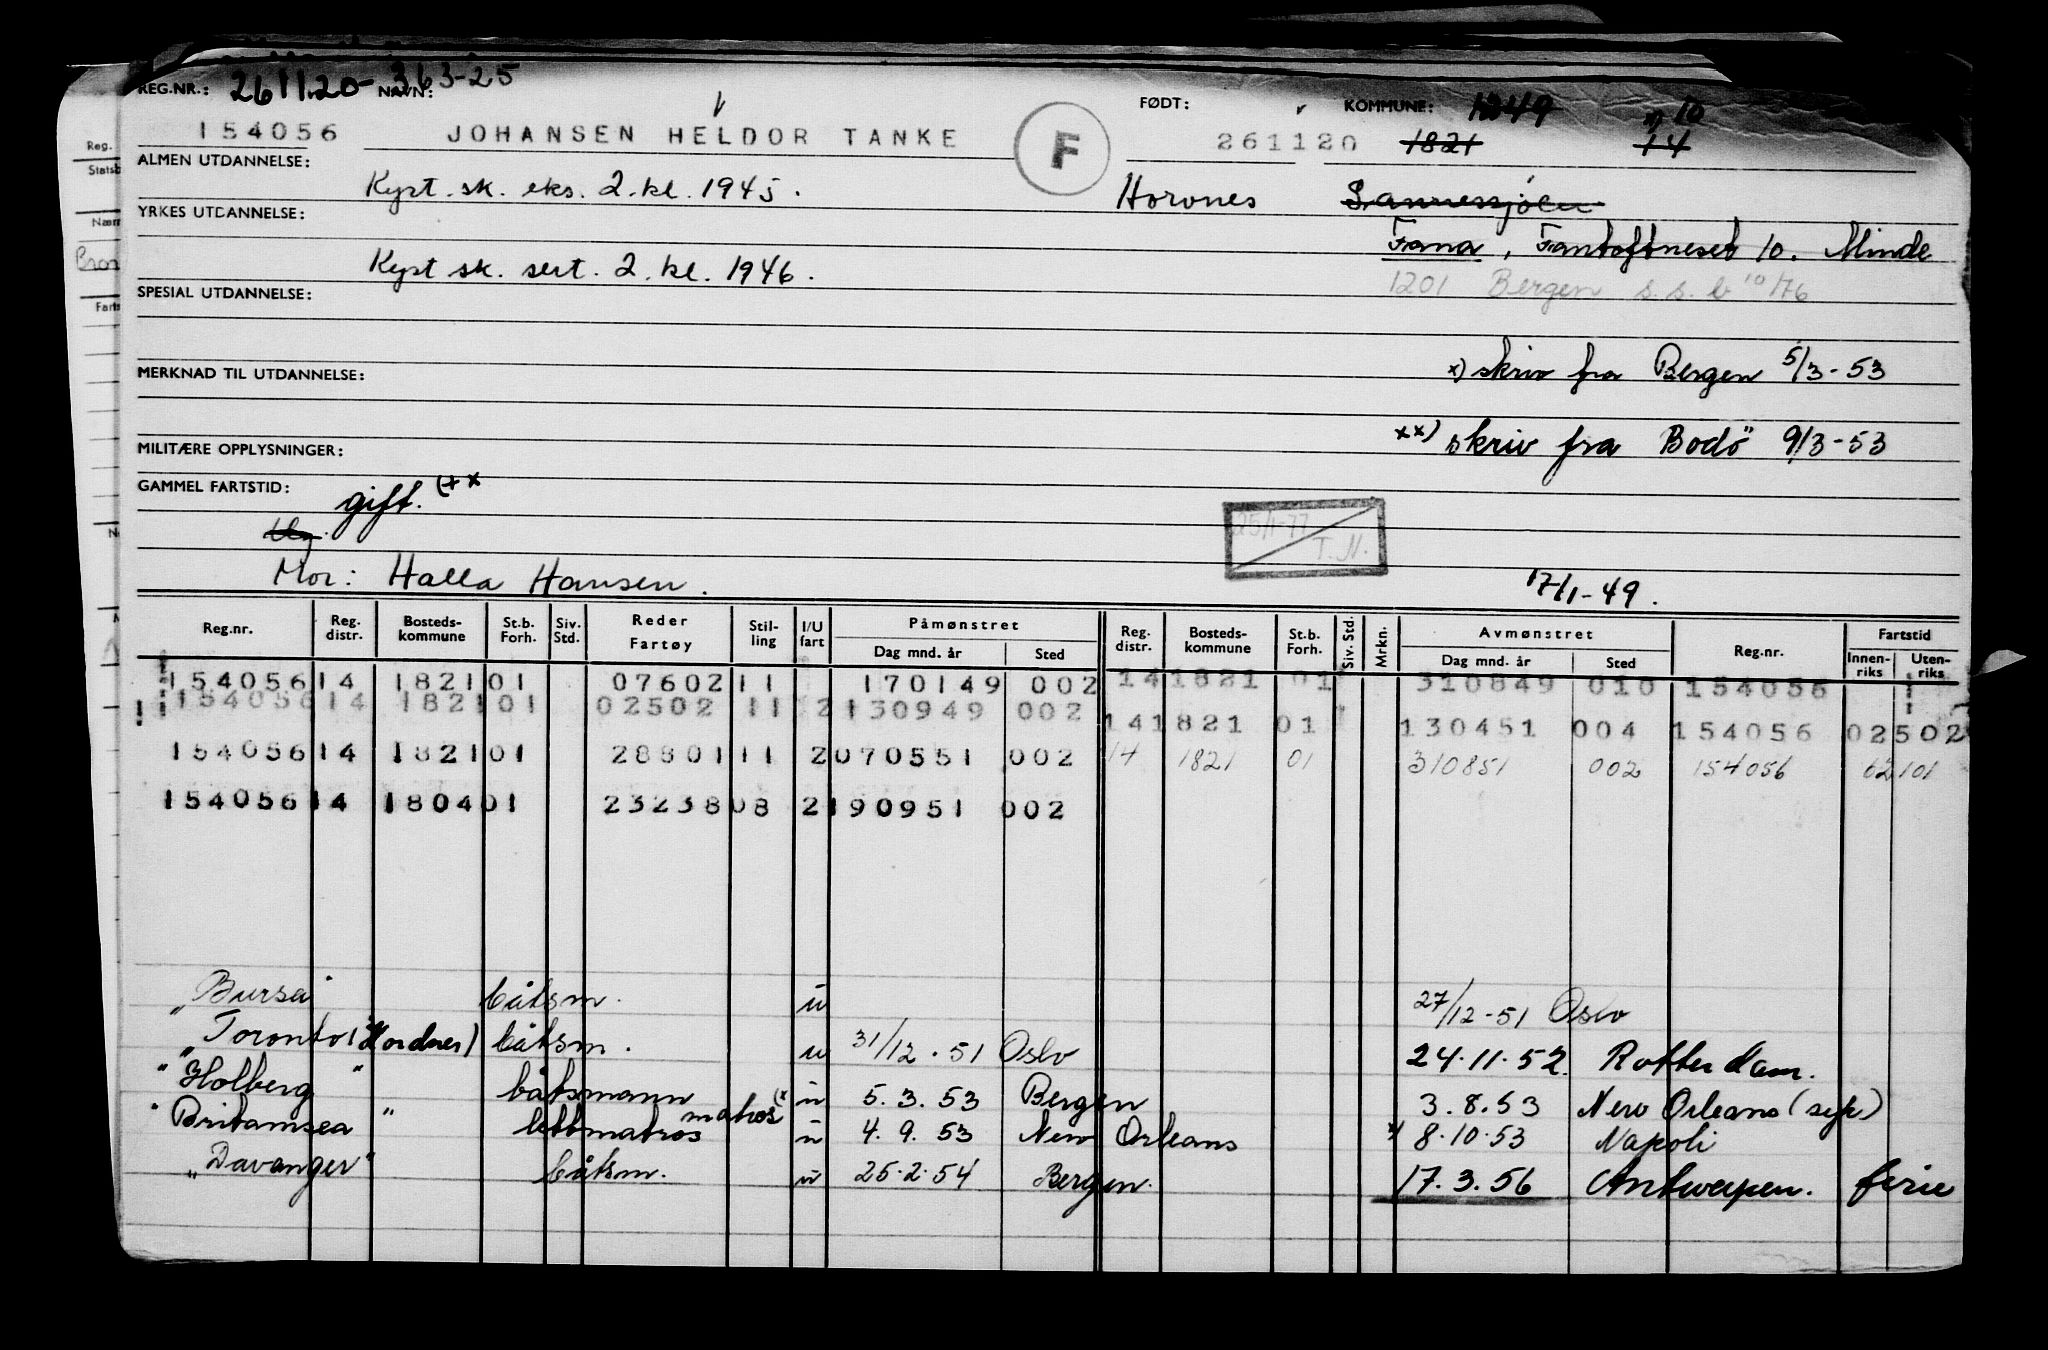 REG.NR.: 261120-363-25 NAVN: FØDT: KOMMUNE: 1249 x) 10
154056 JOHANSEN HELDOR TANKE F 261120 1821 14
ALMEN UTDANNELSE:
Kyst. sk. eks. 2. kl. 1945. Horvnes Sannessjøen
YRKES UTDANNELSE:
Fana, Fantoftneset 10. Minde
Kyst sk. sert. 2. kl. 1946.
1201 Bergen s.s. b 10/76
SPESIAL UTDANNELSE:
x) skriv fra Bergen 5/3-53
MERKNAD TIL UTDANNELSE:
xx) skriv fra Bodö 9/3-53
MILITÆRE OPPLYSNINGER:
GAMMEL FARTSTID: gift. (xx
25/1-77 T.N.
Mor: Halla Hansen. 17/1-49.
Reg.nr. Reg. distr. Bosteds-kommune St.b. Forh. Siv. Std. Reder Fartøy Stil-ling I/U fart Påmønstret Dag mnd. år Sted Reg. distr. Bosteds-kommune St.b. Forh. Siv. Std. Mrkn. Avmønstret Dag mnd. år Sted Reg.nr. Fartstid Innen-riks Uten-riks
154056 14 1821 01 07602 11 170149 002 14 1821 01 310849 010 154056
154056 14 1821 01 02502 11 2 130949 002 14 1821 01 130451 004 154056 02 502
154056 14 1821 01 28801 11 2 070551 002 14 1821 01 310851 002 154056 02 101
154056 14 1804 01 23238 08 2 190951 002
"Bursa" båtsm. u 27/12-51 Oslo
"Toronto (Hordnes) båtsm. u 31/12.51 Oslo 24.11.52. Rotterdam.
"Holberg" båtsmann u 5.3.53 Bergen 3.8.53 New Orleans (syk)
"Britamsea" lettmatros matros (x u 4.9.53 New Orleans x) 8.10.53 Napoli
"Davanger" båtsm. u 25.2.54 Bergen. 17.3.56 Antwerpen. ferie
Reg.
Statsb
Farts